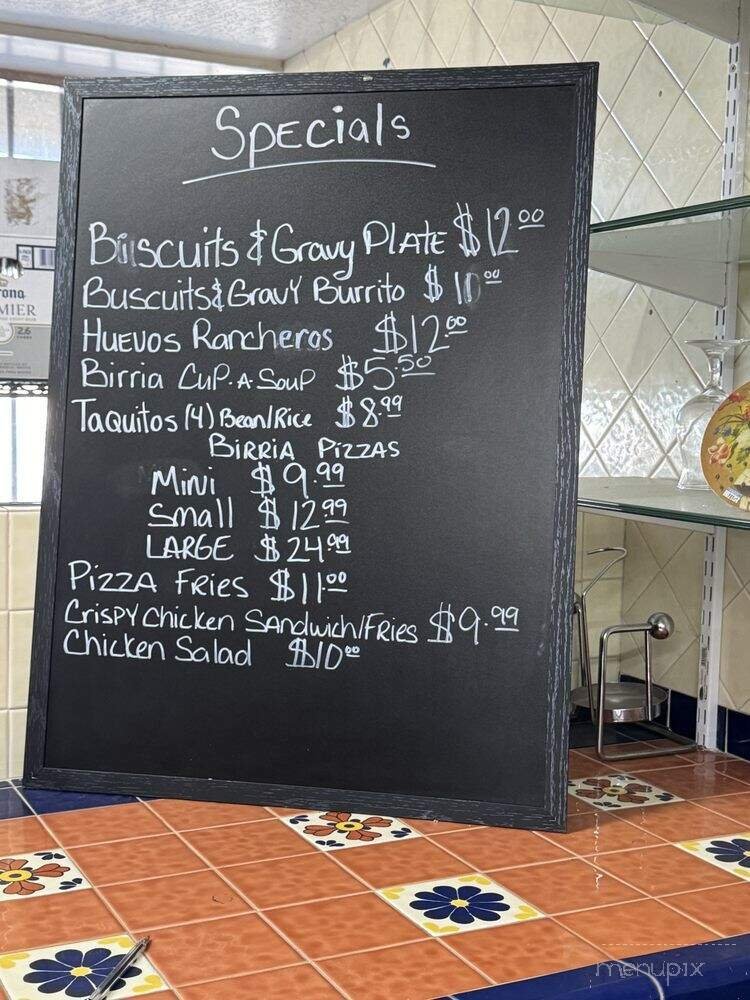 Specials
Biscuits & Gravy Plate $12.00
Buscuits & Gravy Burrito $10.00
Huevos Rancheros $12.00
Birria Cup-A-Soup $5.50
Taquitos (4) Bean/Rice $8.99
Birria Pizzas
Mini $9.99
Small $12.99
LARGE $24.99
Pizza Fries $11.00
Crispy Chicken Sandwich/Fries $9.99
Chicken Salad $10.00
menupix